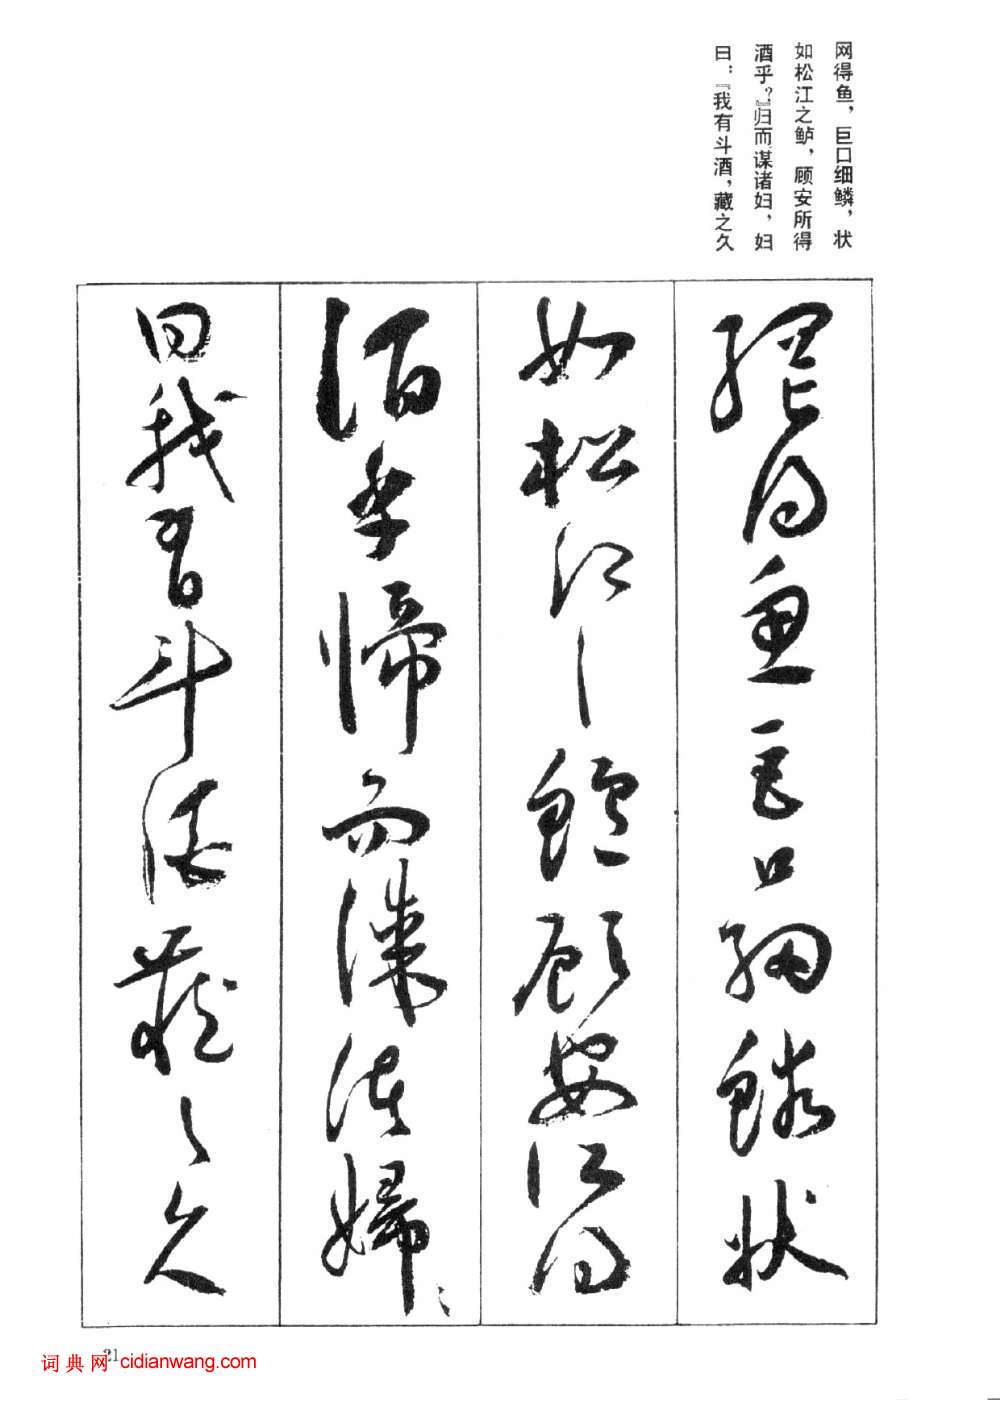 网得鱼，巨口细鳞，状
如松江之鲈，顾安所得
酒乎？』归而谋诸妇，妇
曰：『我有斗酒，藏之久
網得魚巨口細鱗狀
如松江之鱸顧安所得
酒乎歸而謀諸婦〻
曰我有斗酒藏之久
21
词典网 cidianwang.com